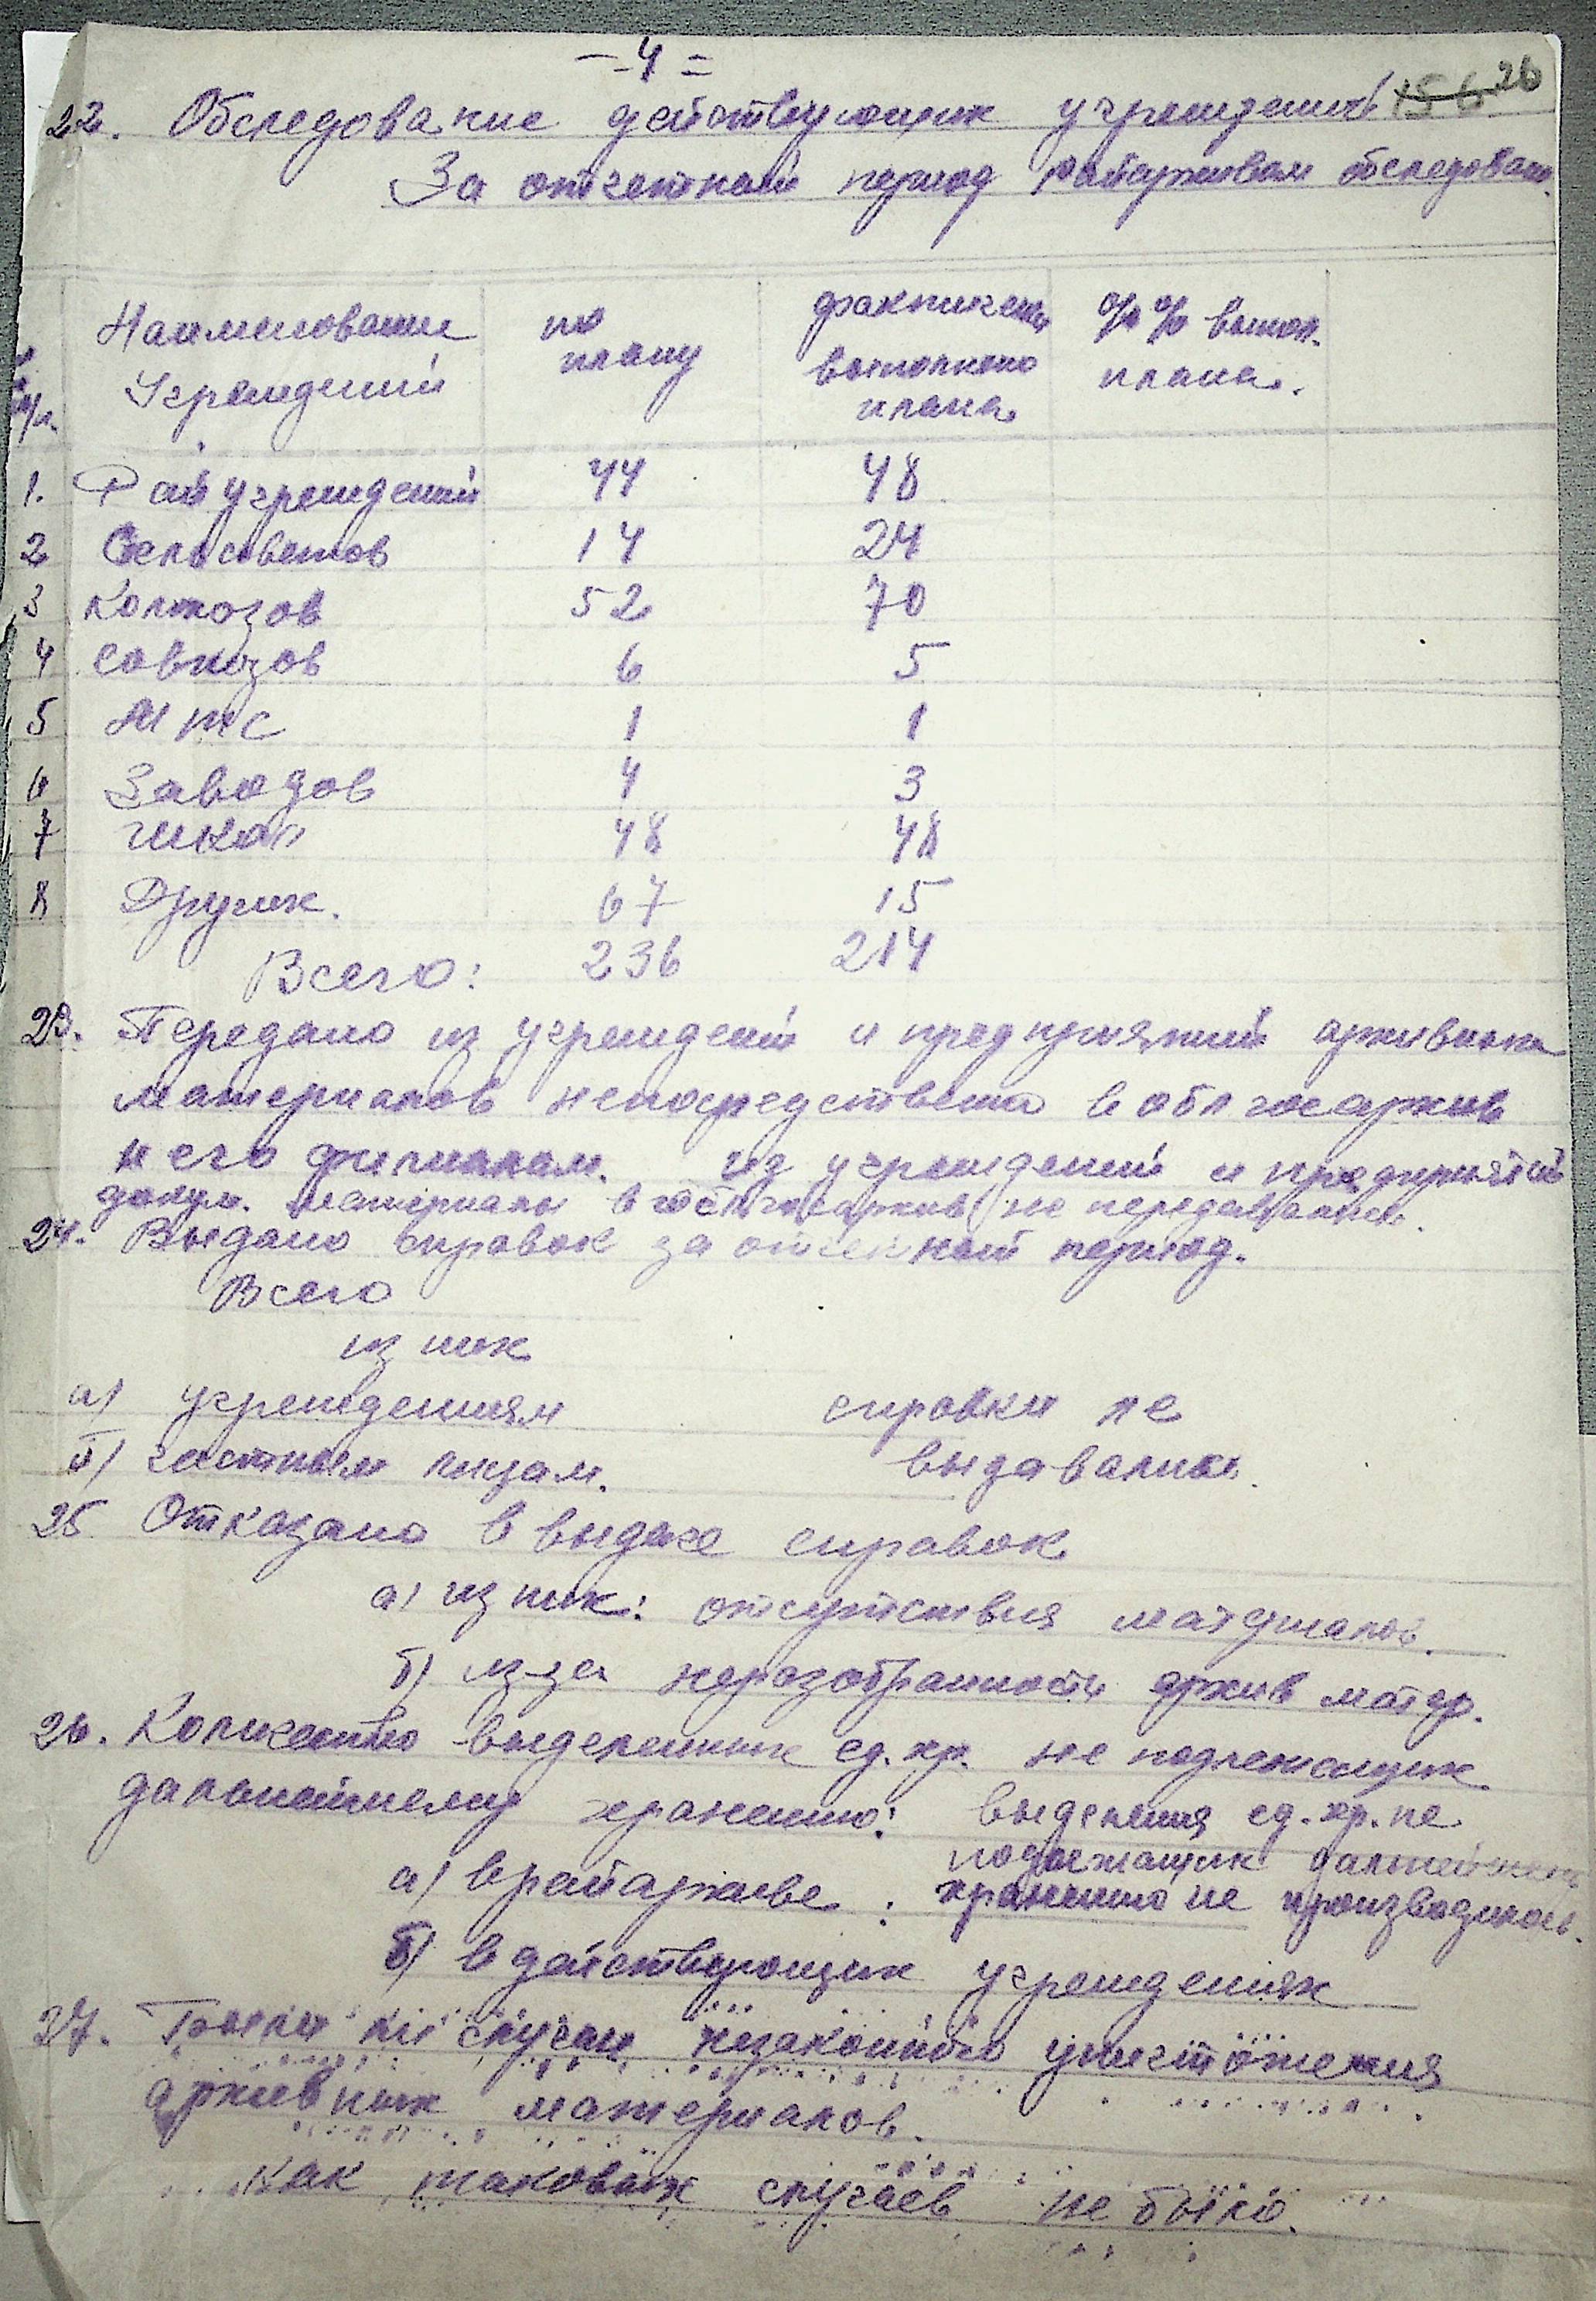 – 4 =
156 26
22. Обследование действующих учреждений
За отчетный период райархивом обследовано.
Наименование по фактическ %% выпол.
Учреждений плану выполнено плана.
п/п. плана
1. Райучреждений 44 48
2 Сельсоветов 14 24
3 Колхозов 52 70
4 Совхозов 6 5
5 МТС 1 1
6 Заводов 4 3
7 Школ 48 48
8 Других. 67 15
Всего: 236 214
23. Передано из учреждений и предприятий архивных
материалов непосредственно в облгосархив
и его филиалам. из учреждений и предприятий
докум. материалы в облгосархив не передавались.
24. Выдано справок за отчетный период.
Всего
из них
а) учреждениям справки не
б) частным лицам. выдавались.
25 Отказано в выдаче справок
а) из них: отсутствия материалов.
б) из-за неразобранности архив матер.
26. Количество выделенных ед. хр. не подлежащих
дальнейшему хранению: выделения ед. хр. не
подлежащих дальнейшему
а) в райархиве : хранению не производилось.
б) в действующих учреждениях
27. Были ли случаи незаконного уничтожения
архивных материалов.
как таковых случаев не было.